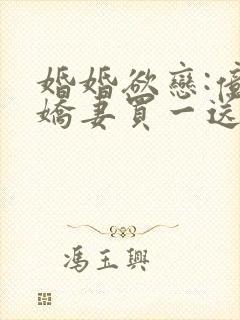 婚婚欲戀:
嬌妻買一送
馮玉興